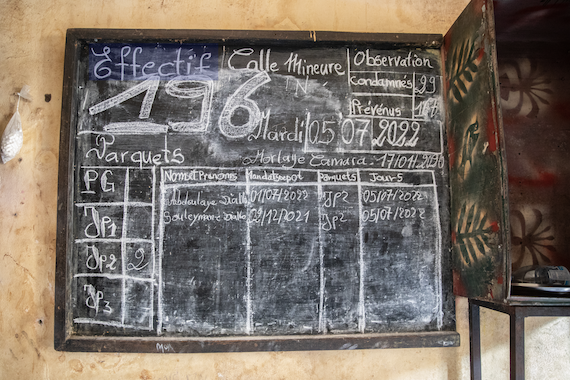 Effectif Calle Mineure Observation
196 IN Condamnés 99
Prévenus
Mardi 05 07 2022
Parquets Morlaye Camara : 17/01/
PG Nom et Prenoms Mandat Depot Parquets Jour-S
Abdoulaye Diallo 01/07/2022 JP2 05/07/2022
Jp1 Souleymane Diallo 29/12/2021 JP2 05/07/2022
Jp2 2
Jp3